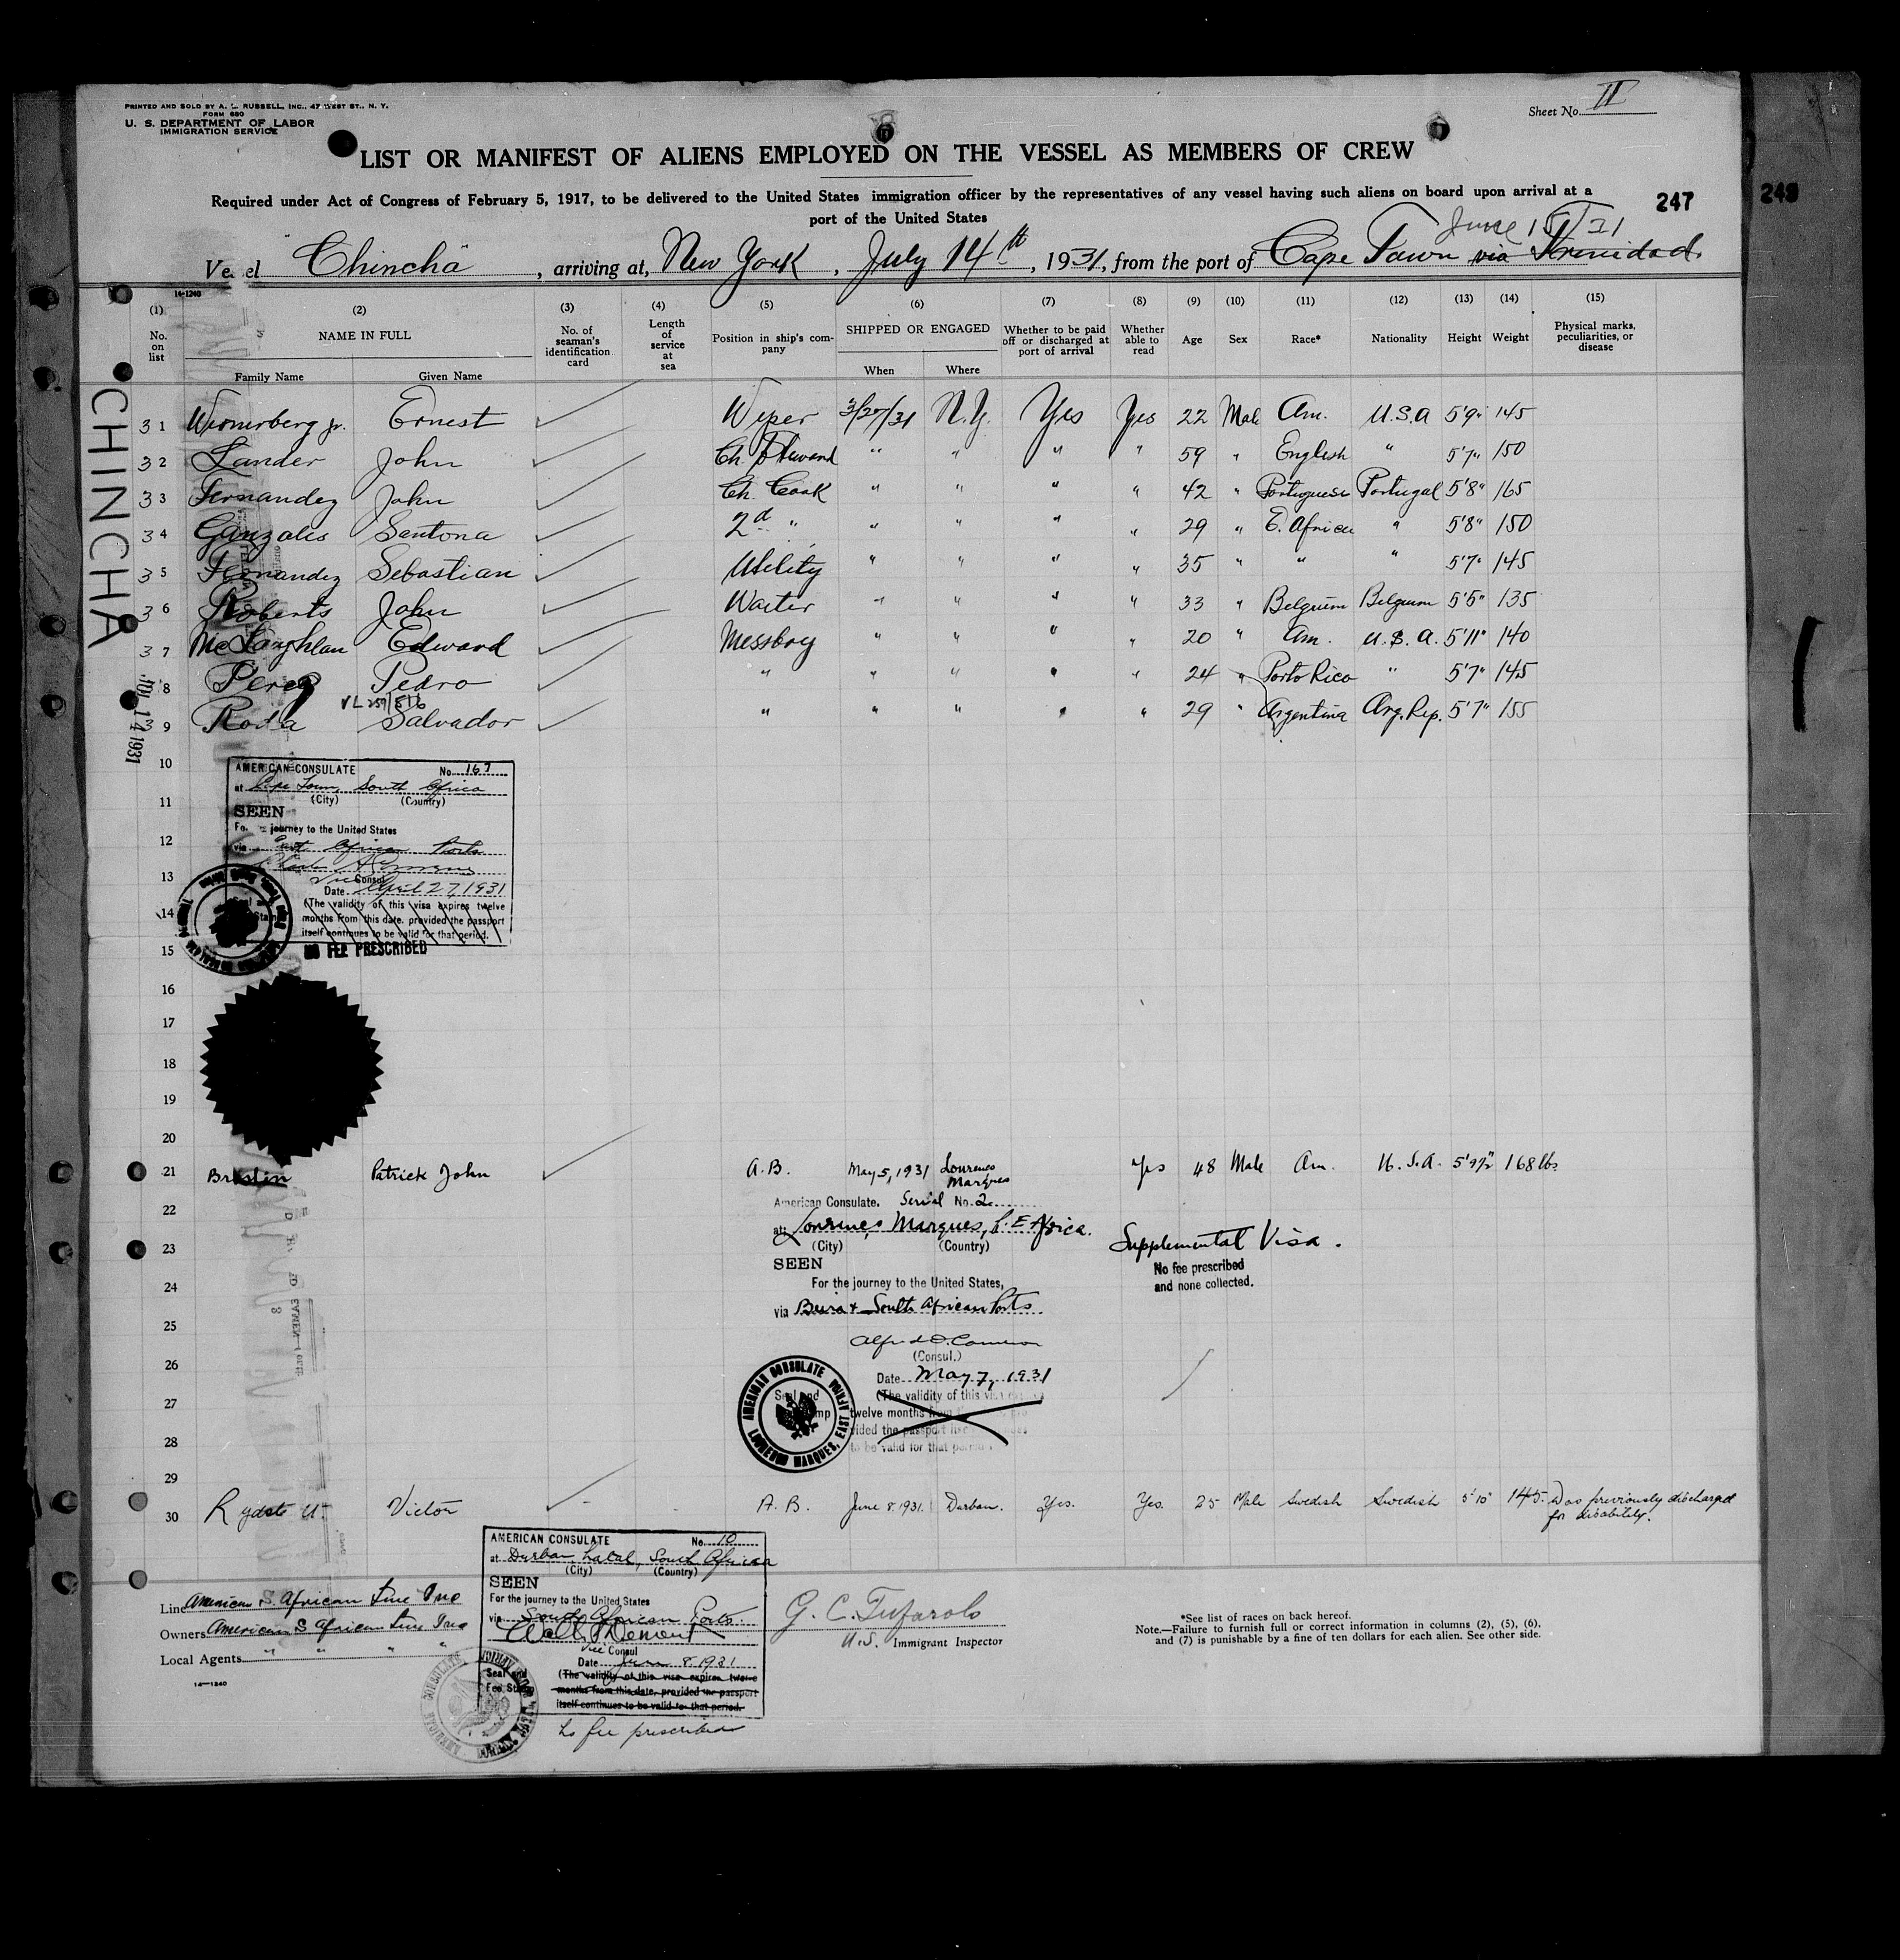 PRINTED AND SOLD BY A. L. RUSSELL, INC., 47 WEST ST., N. Y.
FORM 680
U. S. DEPARTMENT OF LABOR
IMMIGRATION SERVICE
Sheet No. II
LIST OR MANIFEST OF ALIENS EMPLOYED ON THE VESSEL AS MEMBERS OF CREW
Required under Act of Congress of February 5, 1917, to be delivered to the United States immigration officer by the representatives of any vessel having such aliens on board upon arrival at a
port of the United States
247
249
June 15/31
Vessel Chincha, arriving at, New York, July 14th, 1931, from the port of Cape Town via Trinidad.
14-1240
(1) (2) (3) (4) (5) (6) (7) (8) (9) (10) (11) (12) (13) (14) (15)
No. on list
NAME IN FULL
Family Name Given Name
No. of seaman's identification card
Length of service at sea
Position in ship's company
SHIPPED OR ENGAGED
When Where
Whether to be paid off or discharged at port of arrival
Whether able to read
Age
Sex
Race*
Nationality
Height
Weight
Physical marks, peculiarities, or disease
CHINCHA
JUL 14 1931
31 Ernest Wiper 3/27/31 N.Y. Yes Yes 22 Male Am. U.S.A 5'9" 145
32 Lander John Ch. Steward " " " " 59 " English " 5'7" 150
33 Fernandez John Ch. Cook " " " " 42 " Portuguese Portugal 5'8" 165
34 Ganzalis Santona 2d " " " " " 29 " E. Africa " 5'8" 150
35 Fernandez Sebastian Utility " " " " 35 " " " 5'7" 145
36 Roberts John Waiter " " " " 33 " Belgium Belgium 5'5" 135
37 McLaughlan Edward Messboy " " " " 20 " Am. U.S.A. 5'11" 140
8 Perez Pedro " " " " " 24 " Porto Rico " 5'7" 145
39 Roda Salvador " " " " " 29 " Argentina Arg. Rep. 5'7" 155
10
AMERICAN CONSULATE No. 167
at Cape Town, South Africa
(City) (Country)
11
SEEN
For the journey to the United States
12
via East African Ports
13
Vice Consul
Date April 27, 1931
14
(The validity of this visa expires twelve
months from this date, provided the passport
itself continues to be valid for that period.
15
NO FEE PRESCRIBED
16
17
18
19
20
21 Breslin Patrick John A.B. May 5, 1931 Lourenco Marques Yes 48 Male Am. U.S.A. 5'9½" 168 lbs
22
American Consulate. Serial No. 2
at Lourenço Marques, P. E. Africa.
(City) (Country)
Supplemental Visa.
No fee prescribed
and none collected.
23
SEEN
24
For the journey to the United States,
via Beira & South African Ports
25
26
(Consul.)
Date May 7, 1931
27
Seal and
(The validity of this visa
twelve months
28
to be valid for that period
AMERICAN CONSULATE
LOURENCO MARQUES, EAST AFRICA
29
30 Victor A.B. June 8. 1931. Durban. Yes. Yes. 25 Male Swedish Swedish 5'10" 145. Was previously discharged
for disability.
AMERICAN CONSULATE No. 10
at Durban, Natal, South Africa
(City) (Country)
SEEN
For the journey to the United States
via South African Ports.
Vice Consul
Date June 8 1931
Seal and
Fee Stamp
(The validity of this visa expires twelve
months from this date, provided the passport
itself continues to be valid for that period.
No fee prescribed
Line American S. African Line Inc
Owners American S African Line Inc
Local Agents " " " "
14-1240
G. C. Tufarolo
U.S. Immigrant Inspector
*See list of races on back hereof.
Note.—Failure to furnish full or correct information in columns (2), (5), (6),
and (7) is punishable by a fine of ten dollars for each alien. See other side.